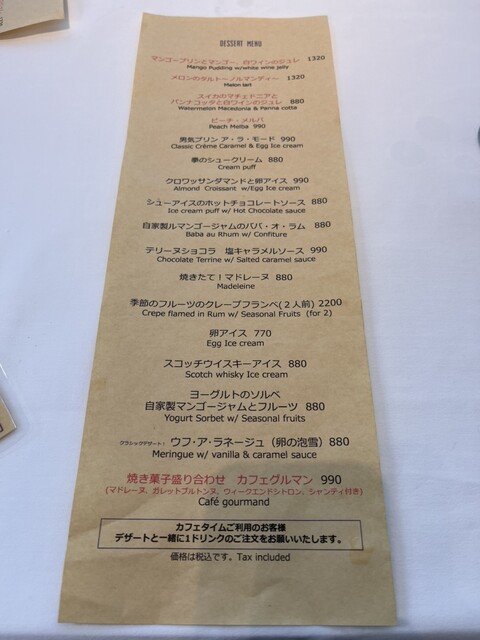 DESSERT MENU
マンゴープリンとマンゴー、白ワインのジュレ 1320
Mango Pudding w/white wine jelly
メロンのタルトーノルマンディー 1320
Melon tart
スイカのマチェドニアと
パンナコッタと白ワインのジュレ 880
Watermelon Macedonia & Panna cotta
ピーチ・メルバ
Peach Melba 990
男気プリン ア・ラ・モード 990
Classic Crème Caramel & Egg Ice cream
拳のシュークリーム 880
Cream puff
クロワッサンダマンドと卵アイス 990
Almond Croissant w/Egg Ice cream
シューアイスのホットチョコレートソース 880
Ice cream puff w/ Hot Chocolate sauce
自家製ルマンゴージャムのババ・オ・ラム 880
Baba au Rhum w/ Confiture
テリーヌショコラ 塩キャラメルソース 990
Chocolate Terrine w/ Salted caramel sauce
焼きたて！マドレーヌ 880
Madeleine
季節のフルーツのクレープフランベ(２人前) 2200
Crepe flamed in Rum w/ Seasonal Fruits (for 2)
卵アイス 770
Egg Ice cream
スコッチウイスキーアイス 880
Scotch whisky Ice cream
ヨーグルトのソルベ
自家製マンゴージャムとフルーツ 880
Yogurt Sorbet w/ Seasonal fruits
クラシックデザート！ ウフ・ア・ラネージュ（卵の泡雪）880
Meringue w/ vanilla & caramel sauce
焼き菓子盛り合わせ カフェグルマン 990
(マドレーヌ、ガレットブルトンヌ、ウィークエンドシトロン、シャンティ付き)
Café gourmand
カフェタイムご利用のお客様
デザートと一緒に1ドリンクのご注文をお願いいたします。
価格は税込です。Tax included